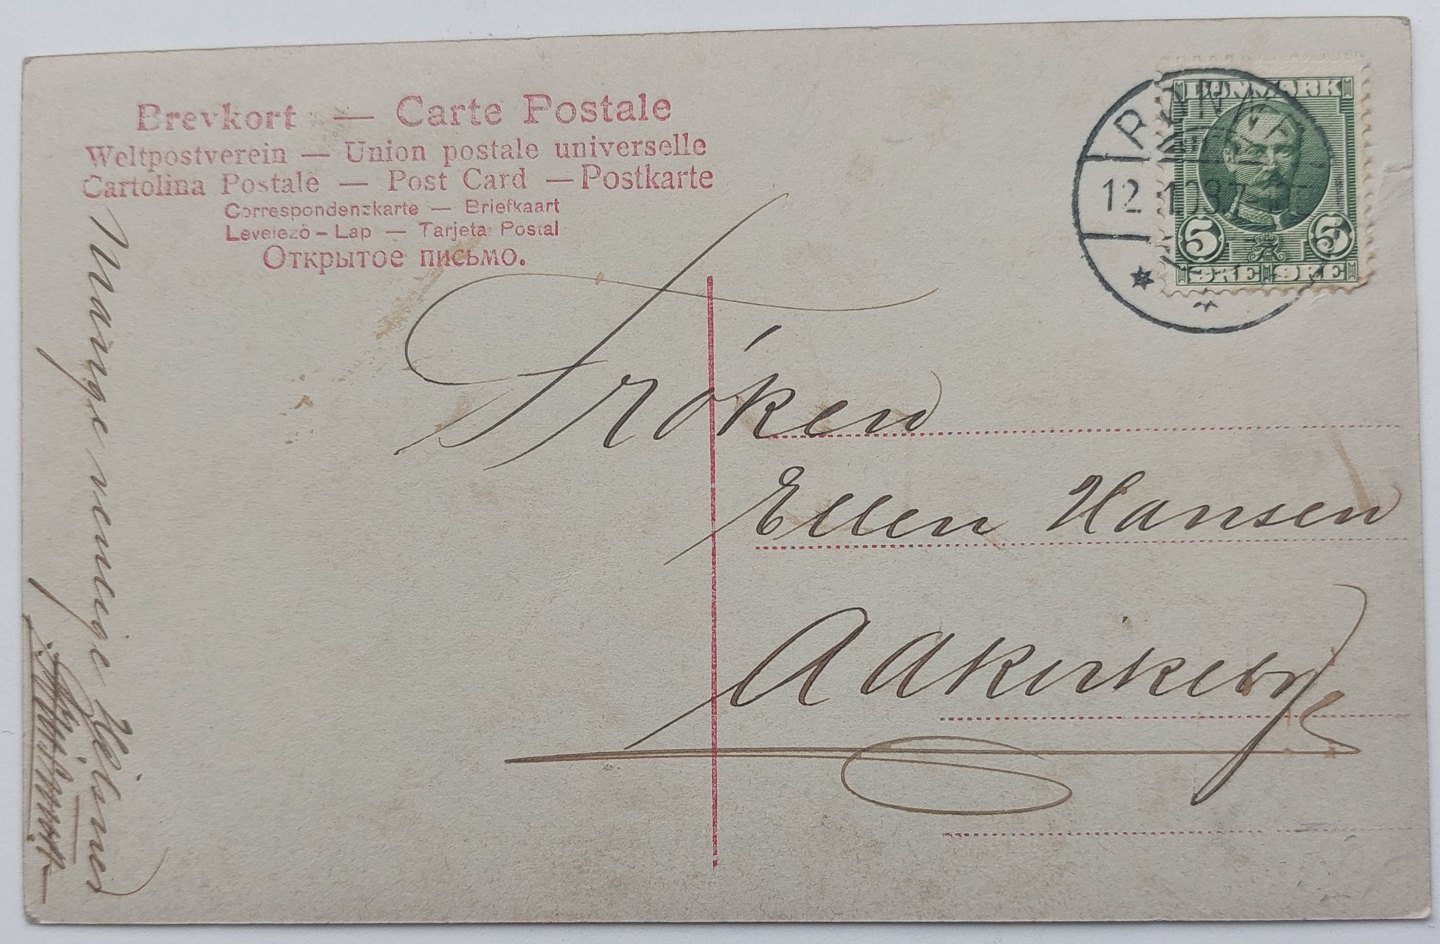 Brevkort — Carte Postale
Weltpostverein — Union postale universelle
Cartolina Postale — Post Card — Postkarte
Correspondenzkarte — Briefkaart
Levelező-Lap — Tarjeta Postal
Открытое письмо.
DANMARK
5 5
ØRE ØRE
RØNNE
12.1.08
Frøken
Ellen Hansen
Aakirkeby
Mange venlige Hilsner